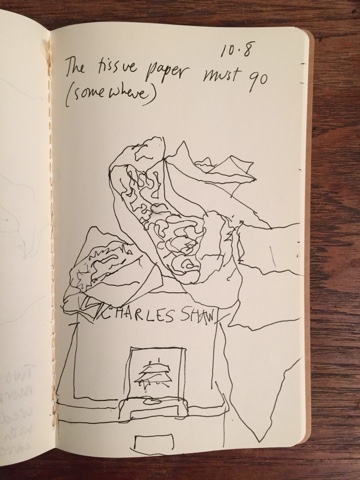 10.8
The tissue paper must go
(somewhere)
CHARLES SHAW